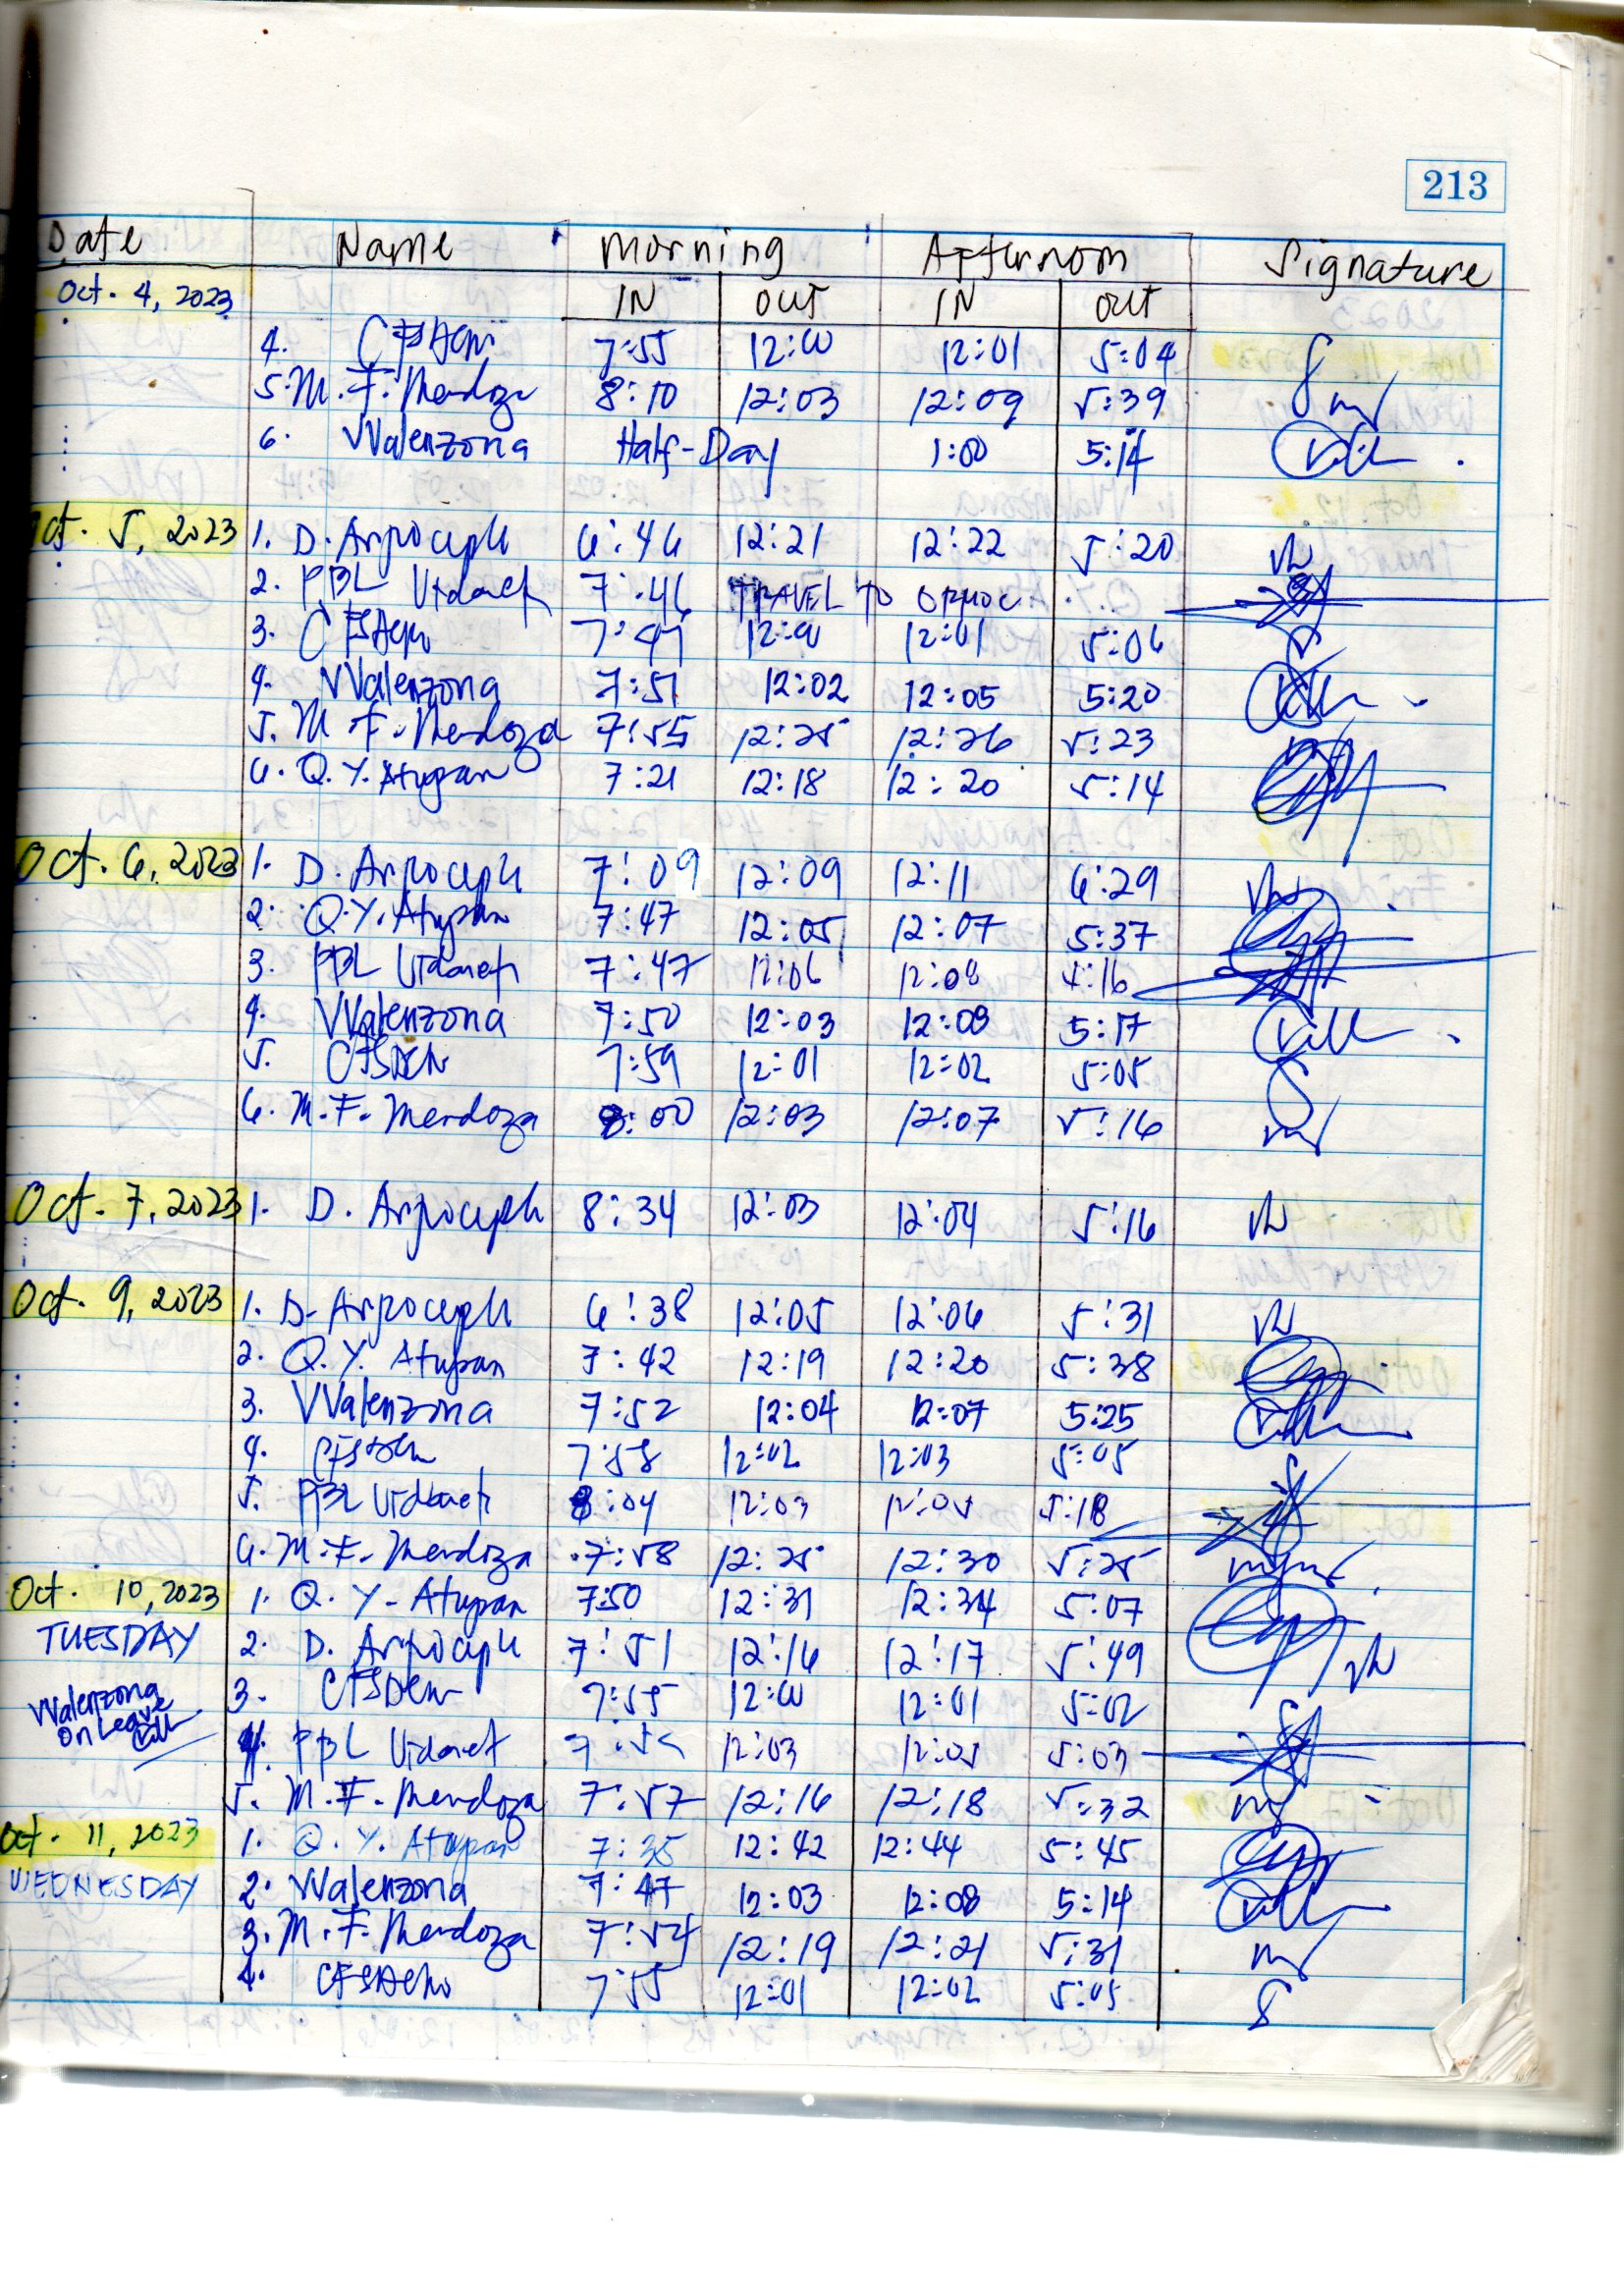 213
Date Name Morning Afternoon Signature
Oct. 4, 2023 IN OUT IN OUT
4. 7:55 12:00 12:01 5:04
5. M. F. Mendoza 8:10 12:03 12:09 5:39
6. VValenzona Half-Day 1:00 5:14
Oct. 5, 2023 1. D. 6:46 12:21 12:22 5:20
2. PBL 7:46 TRAVEL TO ORMOC
3. 7:47 12:00 12:01 5:06
4. VValenzona 7:51 12:02 12:05 5:20
5. M. F. Mendoza 7:55 12:25 12:26 5:23
6. Q. Y. Atupan 7:21 12:18 12:20 5:14
Oct. 6, 2023 1. D. 7:09 12:09 12:11 6:29
2. Q. Y. Atupan 7:47 12:05 12:07 5:37
3. PBL 7:47 12:06 12:08
4. VValenzona 7:50 12:03 12:08 5:17
5. 7:59 12:01 12:02 5:05
6. M. F. Mendoza 8:00 12:03 12:07 5:16
Oct. 7, 2023 1. D. 8:34 12:03 12:04 5:16
Oct. 9, 2023 1. D. 6:38 12:05 12:06 5:31
2. Q. Y. Atupan 7:42 12:19 12:20 5:38
3. VValenzona 7:52 12:04 12:07 5:25
4. 7:58 12:02 12:03 5:05
5. PBL 8:04 12:03 12:05 5:18
6. M. F. Mendoza 7:58 12:25 12:30 5:25
Oct. 10, 2023 1. Q. Y. Atupan 7:50 12:31 12:34 5:07
TUESDAY 2. D. 7:51 12:16 12:17 5:49
VValenzona
On Leave
3. 7:55 12:00 12:01 5:02
4. PBL 12:03 12:05 5:03
5. M. F. Mendoza 7:57 12:16 12:18 5:32
Oct. 11, 2023 1. Q. Y. Atupan 7:35 12:42 12:44 5:45
WEDNESDAY 2. VValenzona 7:47 12:03 12:08 5:14
3. M. F. Mendoza 7:54 12:19 12:21 5:31
4. 7:55 12:01 12:02 5:05